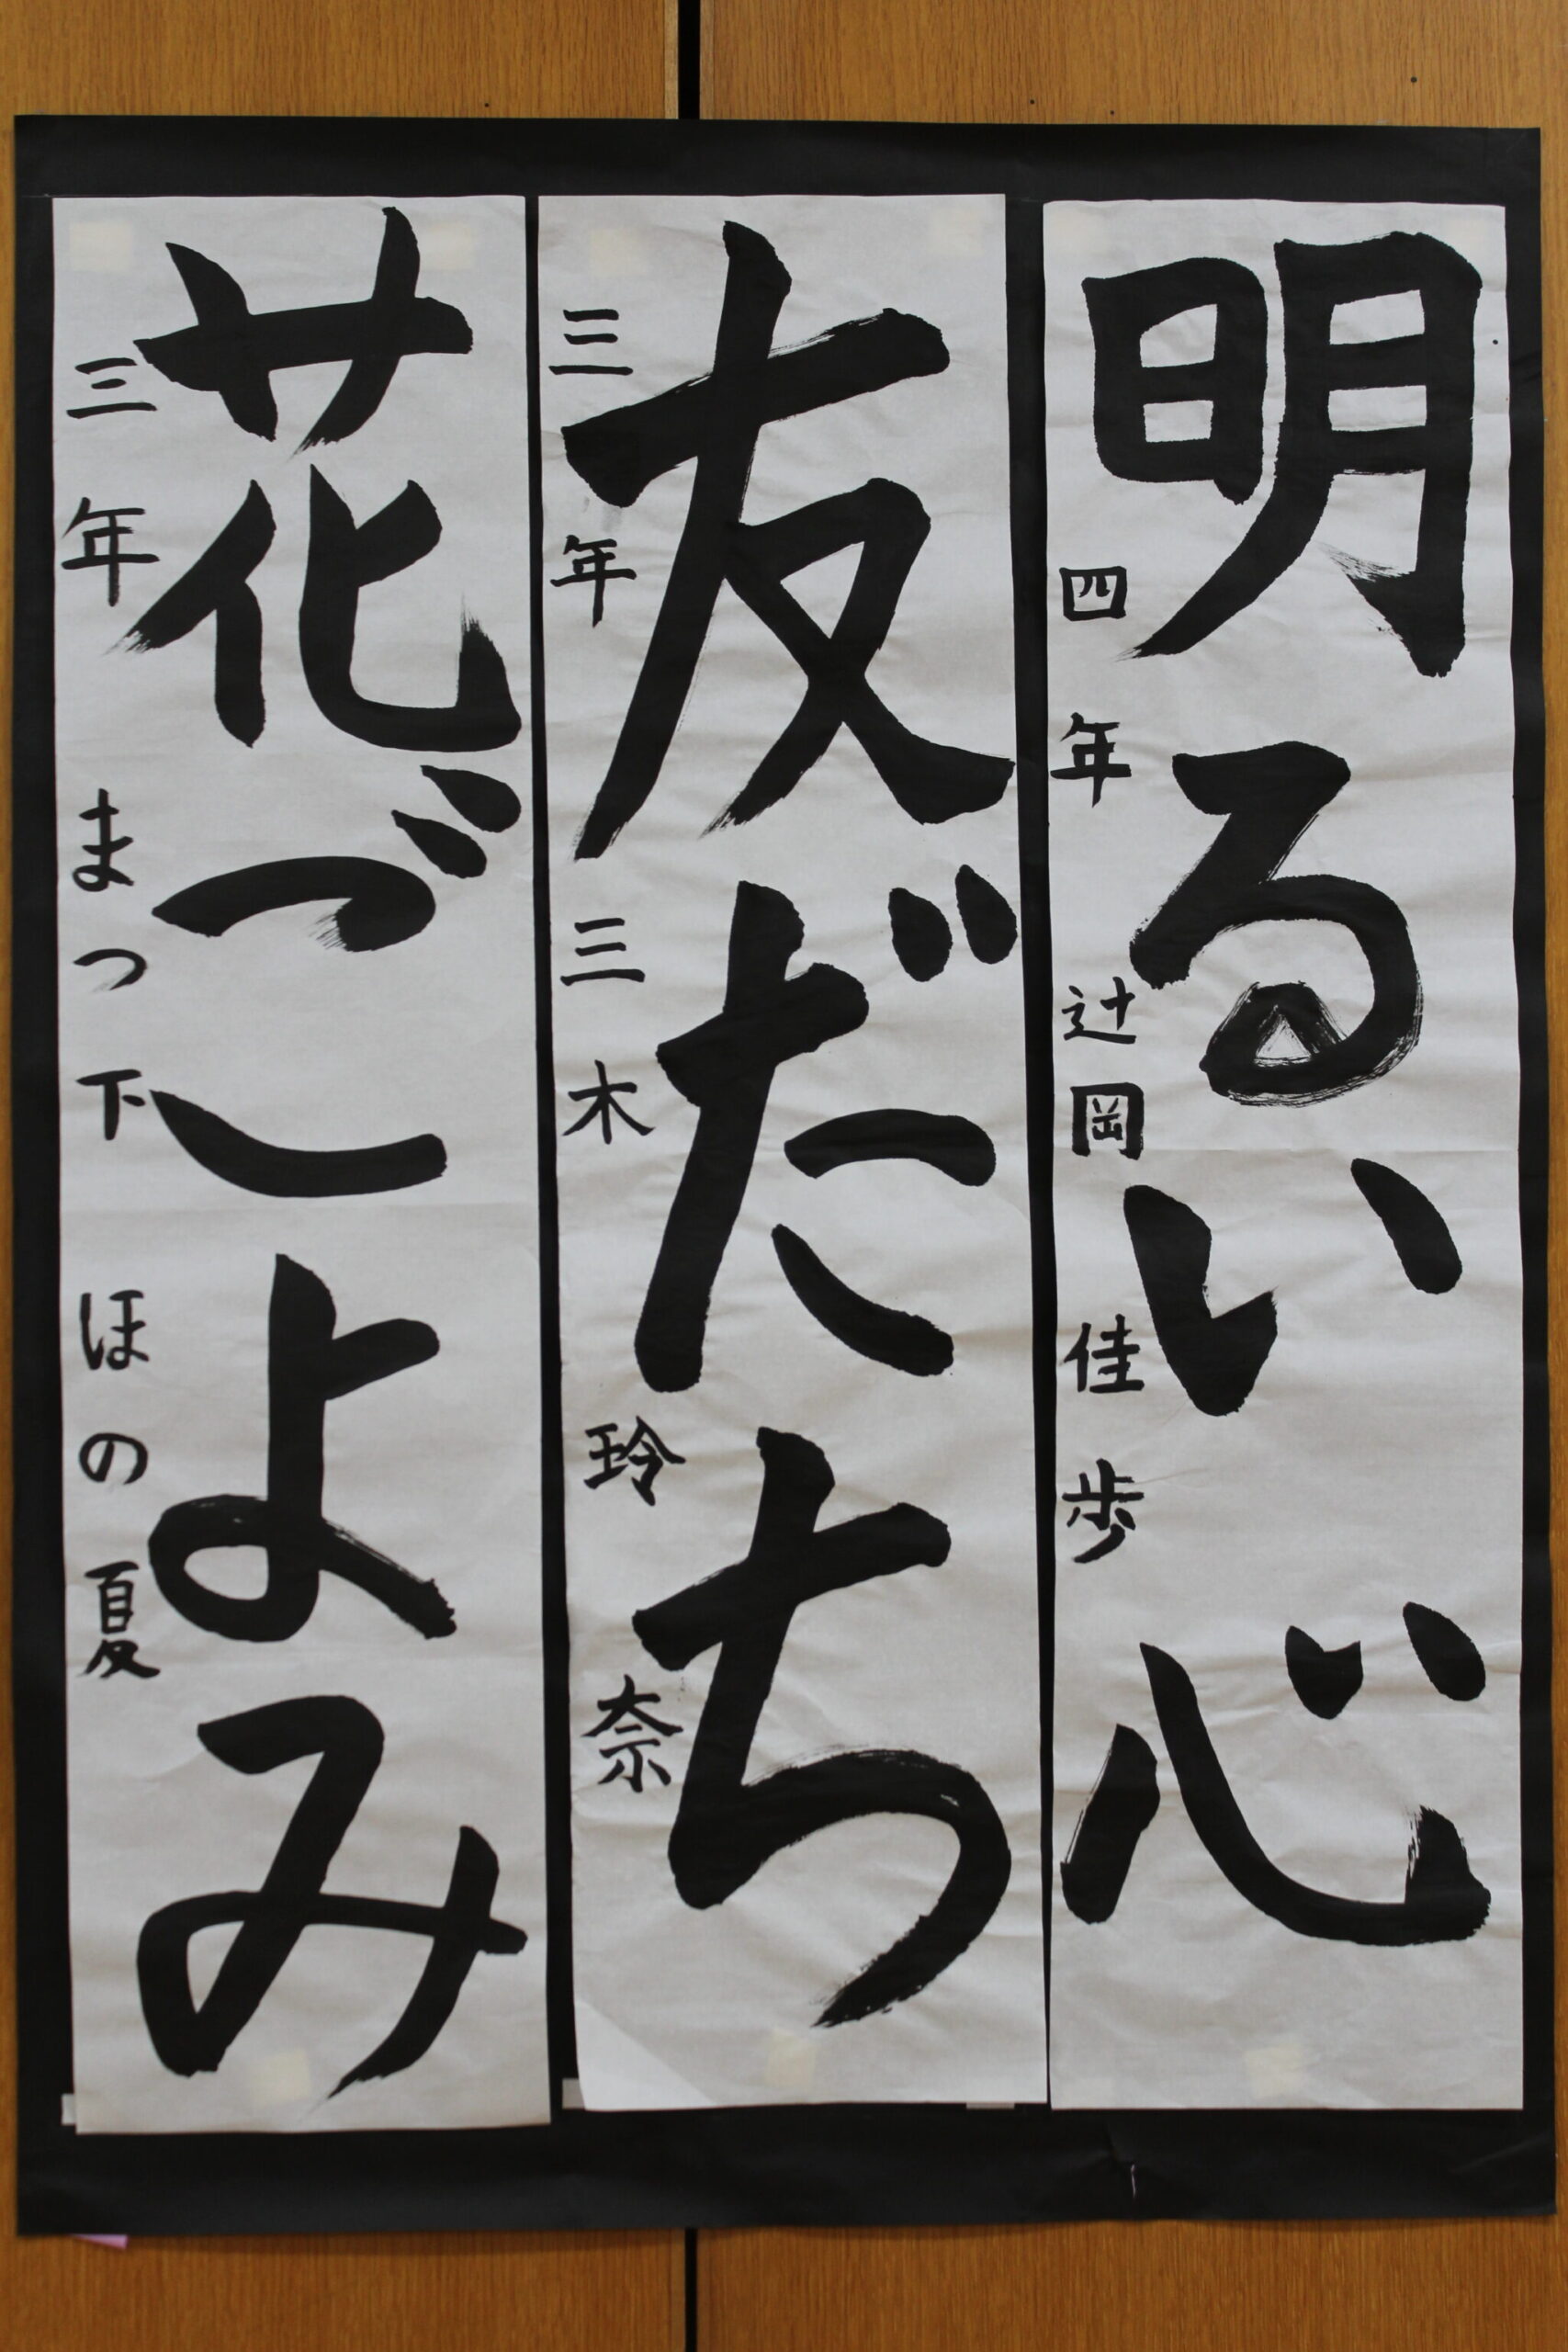 明るい心
四年 辻岡佳歩
友だち
三年 三木玲奈
花ごよみ
三年 まつ下ほの夏